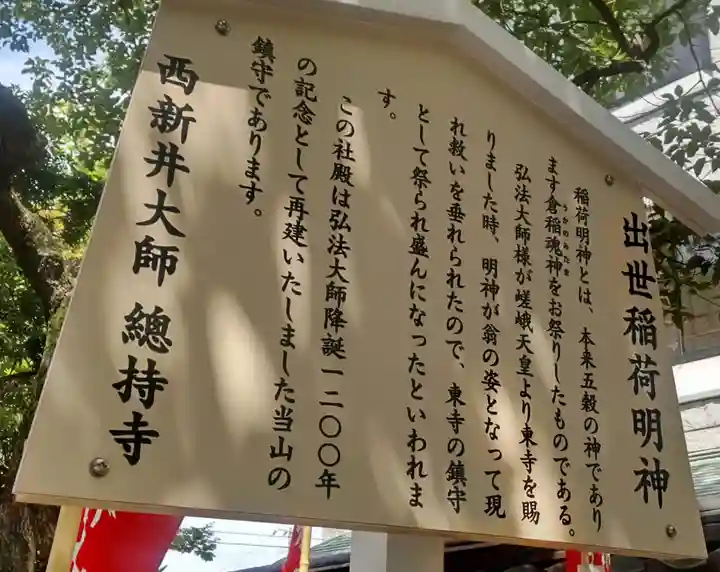 出世稲荷明神
稲荷明神とは、本来五穀の神であり
ます倉稲魂神をお祭りしたものである。
うかのみたま
弘法大師様が嵯峨天皇より東寺を賜
りました時、明神が翁の姿となって現
れ救いを垂れられたので、東寺の鎮守
として祭られ盛んになったといわれま
す。
この社殿は弘法大師降誕一二〇〇年
の記念として再建いたしました当山の
鎮守であります。
西新井大師 總持寺